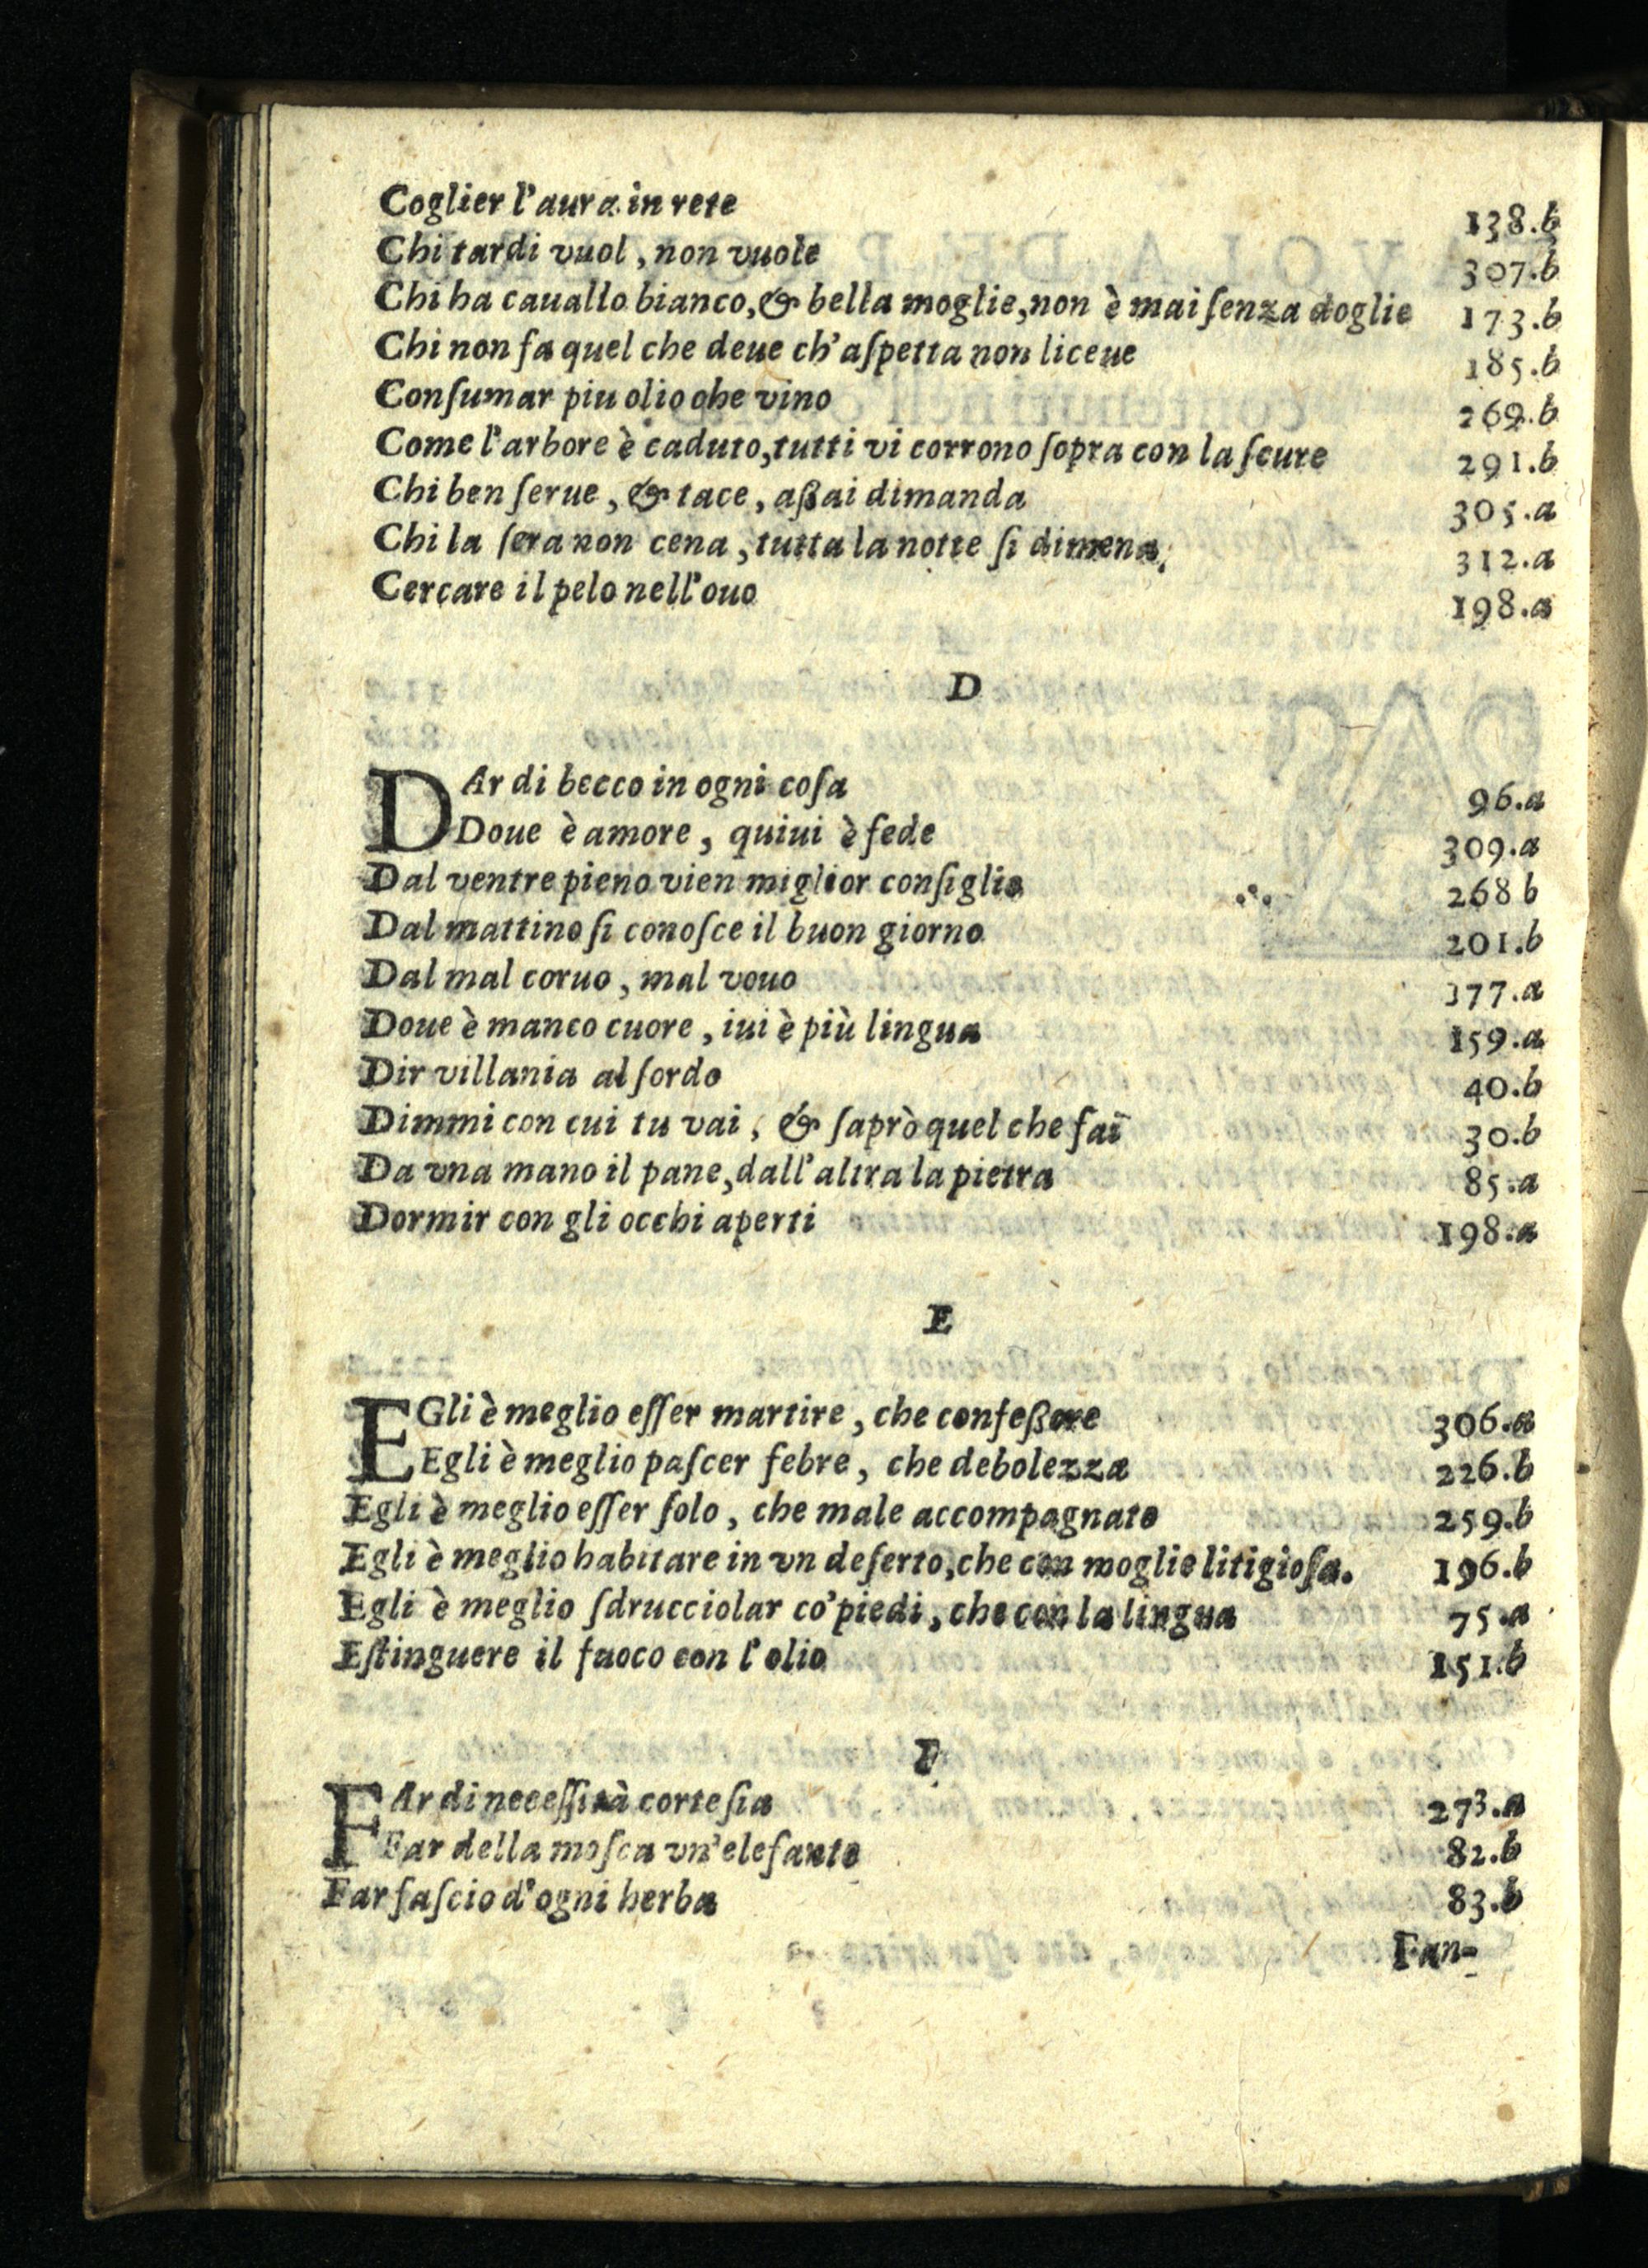 Coglier l'aura in rete 138.b
Chi tardi vuol, non vuole 307.b
Chi ha cauallo bianco, & bella moglie, non è mai ſenza doglie 173.b
Chi non fa quel che deue ch'aſpetta non liceue 185.b
Conſumar piu olio che vino 269.b
Come l'arbore è caduto, tutti vi corrono ſopra con la ſcure 291.b
Chi ben ſerue, & tace, aßai dimanda 305.a
Chi la ſera non cena, tutta la notte ſi dimena. 312.a
Cercare il pelo nell'ouo 198.a
D
DAr di becco in ogni coſa 96.a
Doue è amore, quiui è fede 309.a
Dal ventre pieno vien miglior conſiglio 268 b
Dal mattino ſi conoſce il buon giorno 201.b
Dal mal coruo, mal vouo 177.a
Doue è manco cuore, iui è più lingua 159.a
Dir villania al ſordo 40.b
Dimmi con cui tu vai, & ſaprò quel che fai 30.b
Da vna mano il pane, dall'altra la pietra 85.a
Dormir con gli occhi aperti 198.a
E
EGli è meglio eſſer martire, che confeßore 306.a
Egli è meglio paſcer febre, che debolezza 226.b
Egli è meglio eſſer ſolo, che male accompagnato 259.b
Egli è meglio habitare in vn deſerto, che con moglie litigioſa. 196.b
Egli è meglio ſdrucciolar co'piedi, che con la lingua 75.a
Eſtinguere il fuoco con l'olio 151.b
F
FAr di neceſſità corteſia 273.a
Far della moſca vn'elefante 82.b
Far faſcio d'ogni herba 83.b
Fan-